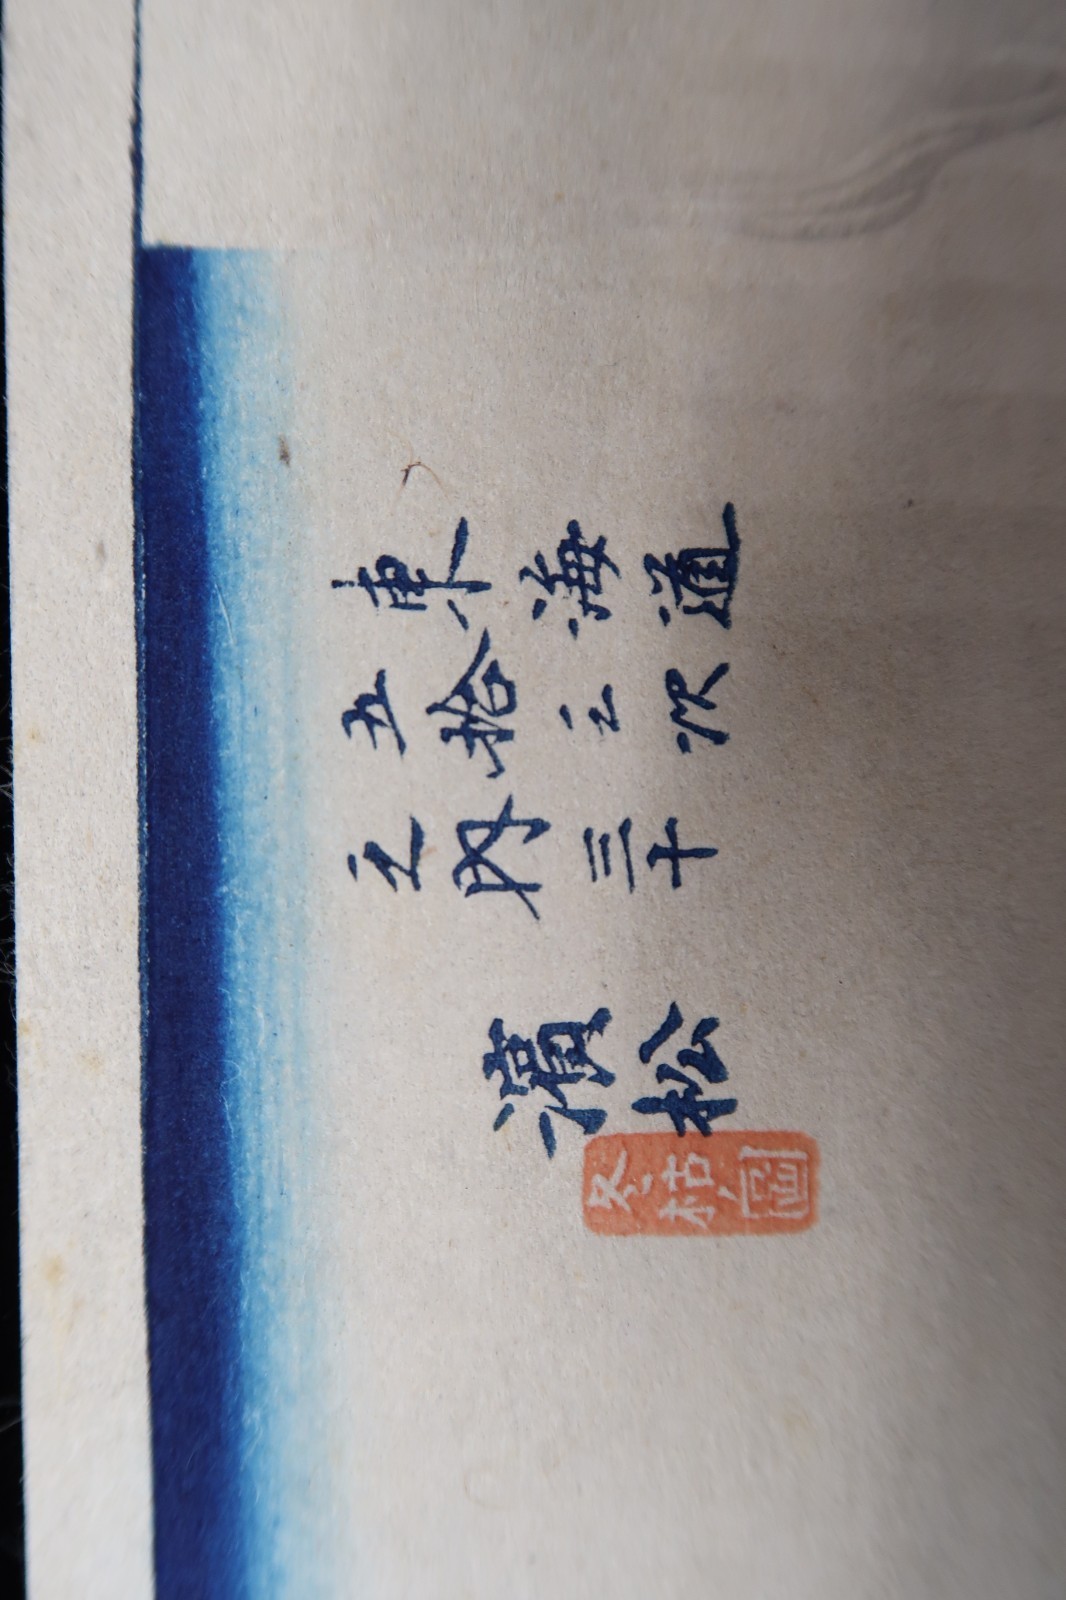 東海道
五拾三次
之内 三十
濱松
冬枯ノ圖